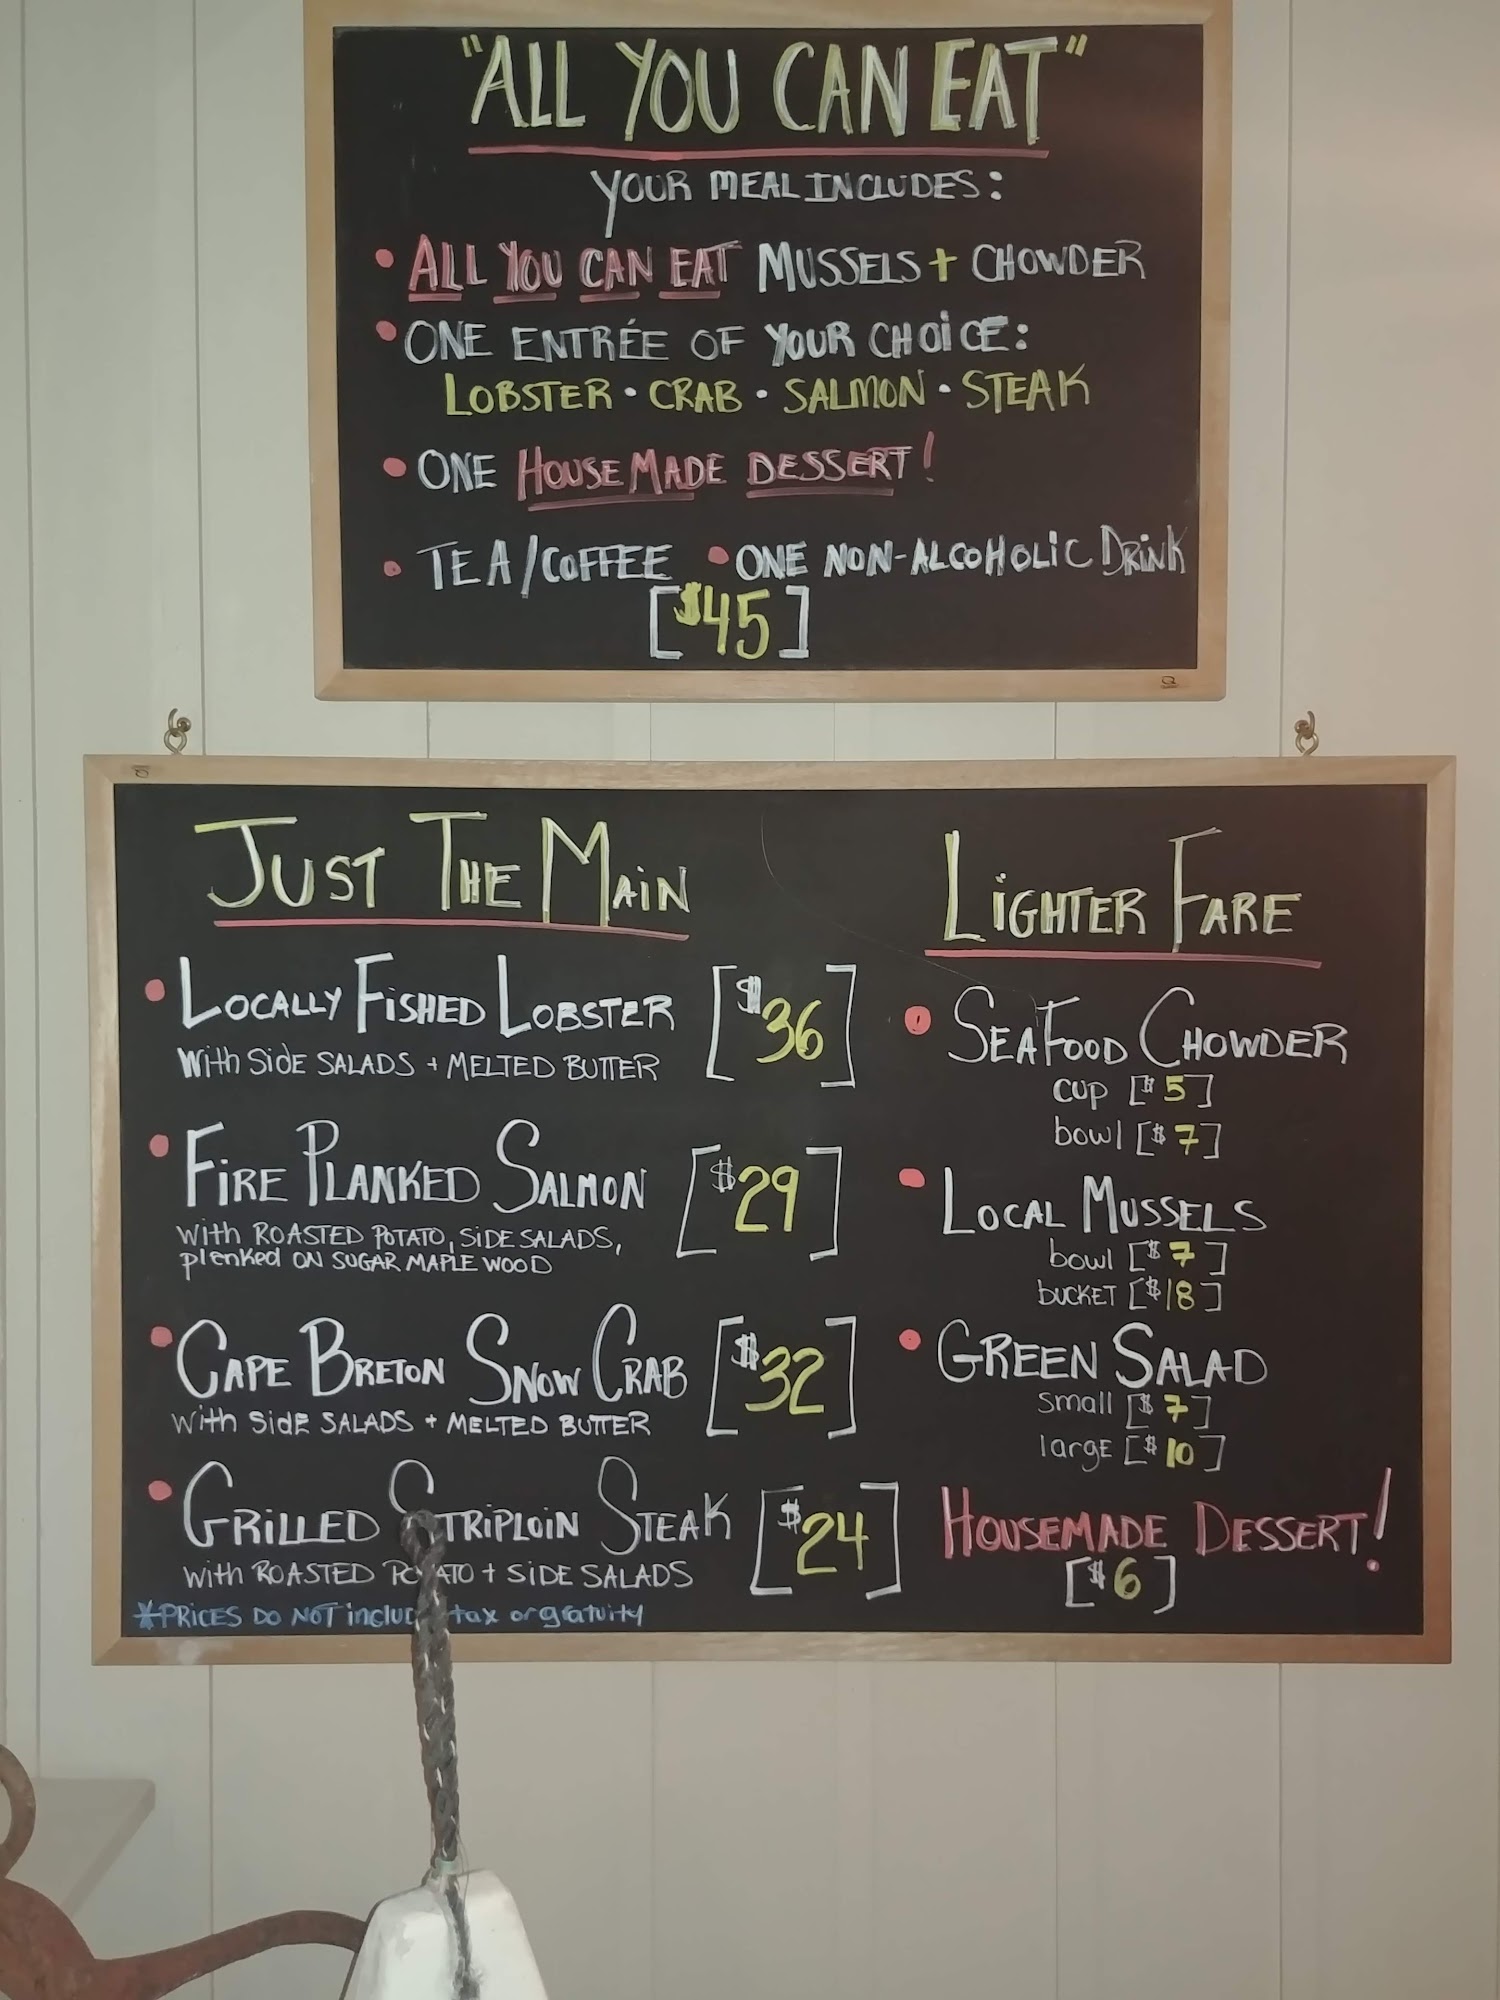 "ALL YOU CAN EAT"
YOUR MEAL INCLUDES:
• ALL YOU CAN EAT MUSSELS + CHOWDER
• ONE ENTRÉE OF YOUR CHOICE:
LOBSTER • CRAB • SALMON • STEAK
• ONE HOUSEMADE DESSERT!
• TEA/COFFEE • ONE NON-ALCOHOLIC DRINK
[$45]
JUST THE MAIN
• LOCALLY FISHED LOBSTER [$36]
With Side SALADS + MELTED BUTTER
• FIRE PLANKED SALMON [$29]
with ROASTED POTATO, SIDE SALADS,
plenked ON SUGAR MAPLE WOOD
• CAPE BRETON SNOW CRAB [$32]
with Side SALADS + MELTED BUTTER
• GRILLED STRIPLOIN STEAK [$24]
with ROASTED POTATO + SIDE SALADS
*PRICES DO NOT include tax or gratuity
LIGHTER FARE
• SEAFOOD CHOWDER
cup [$5]
bowl [$7]
• LOCAL MUSSELS
bowl [$7]
bucket [$18]
• GREEN SALAD
small [$7]
large [$10]
HOUSEMADE DESSERT!
[$6]